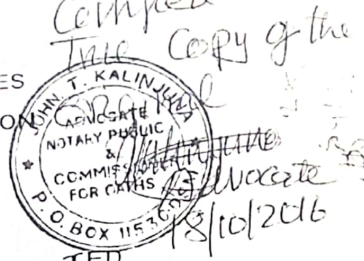 Certified
True Copy of the
ES
ON
JOHN. T. KALINJUNA
ADVOCATE
NOTARY PUBLIC
&
COMMISSIONER
FOR OATHS
P. O. BOX 1153
Advocate
18/10/2016
TED